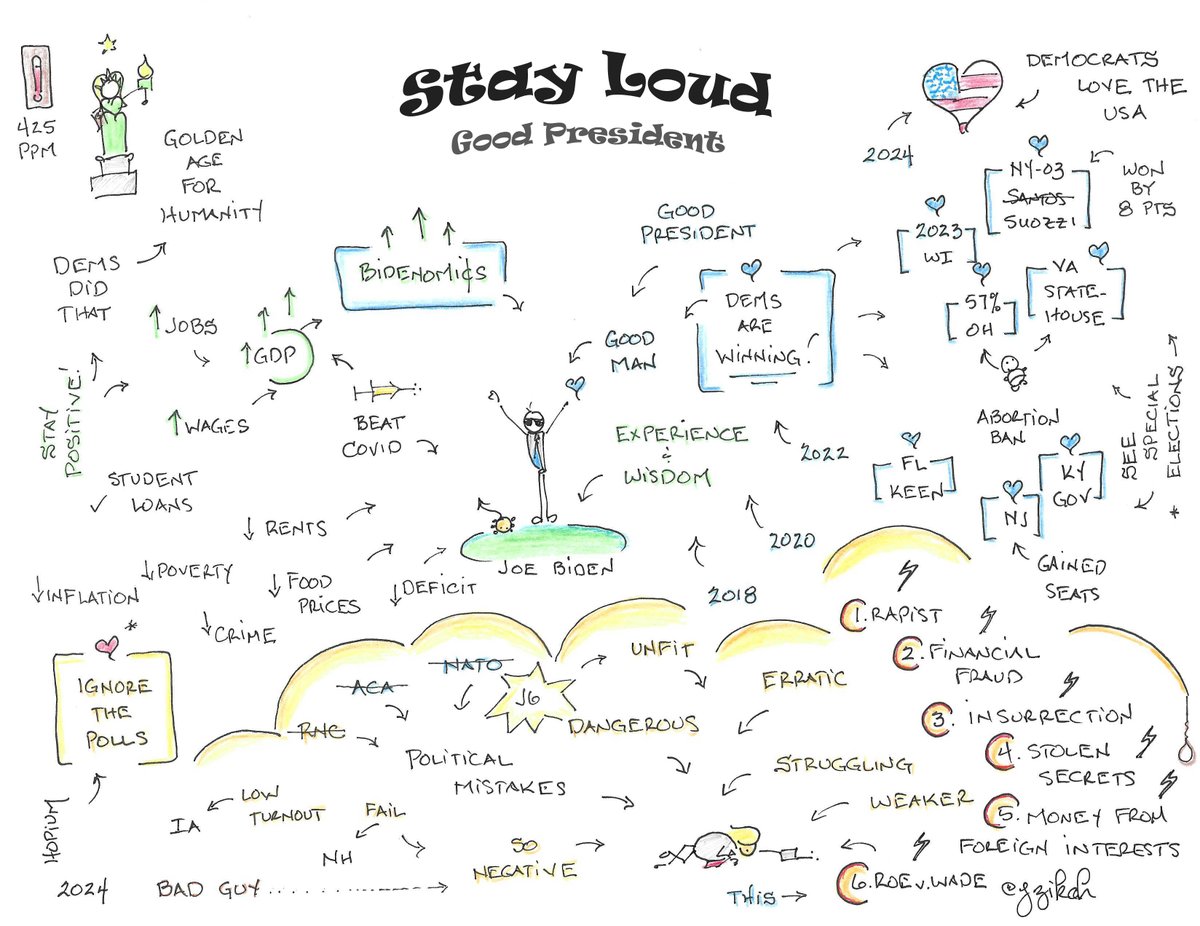 Stay Loud
Good President
425
PPM
GOLDEN
AGE
FOR
HUMANITY
DEMS
DID
THAT
STAY
POSITIVE!
↑JOBS
↑GDP
↑WAGES
BIDENOMI¢S
BEAT
COVID
STUDENT
LOANS
↓RENTS
↓INFLATION
↓POVERTY
↓FOOD
PRICES
↓DEFICIT
↓CRIME
GOOD
PRESIDENT
GOOD
MAN
EXPERIENCE
&
WISDOM
JOE BIDEN
DEMS
ARE
WINNING!
2018
2020
2022
2024
DEMOCRATS
LOVE THE
USA
NY-03
SANTOS
SUOZZI
WON
BY
8 PTS
2023
WI
57%
OH
VA
STATE-
HOUSE
ABORTION
BAN
SEE
SPECIAL
* ELECTIONS
FL
KEEN
KY
GOV
NJ
GAINED
SEATS
*
IGNORE
THE
POLLS
HOPIUM
RNC
ACA
NATO
J6
POLITICAL
MISTAKES
UNFIT
DANGEROUS
ERRATIC
STRUGGLING
WEAKER
LOW
TURNOUT
IA
FAIL
NH
SO
NEGATIVE
2024 BAD GUY
1. RAPIST
2. FINANCIAL
FRAUD
3. INSURRECTION
4. STOLEN
SECRETS
5. MONEY FROM
FOREIGN INTERESTS
THIS →
6. ROE V. WADE
@gzikch